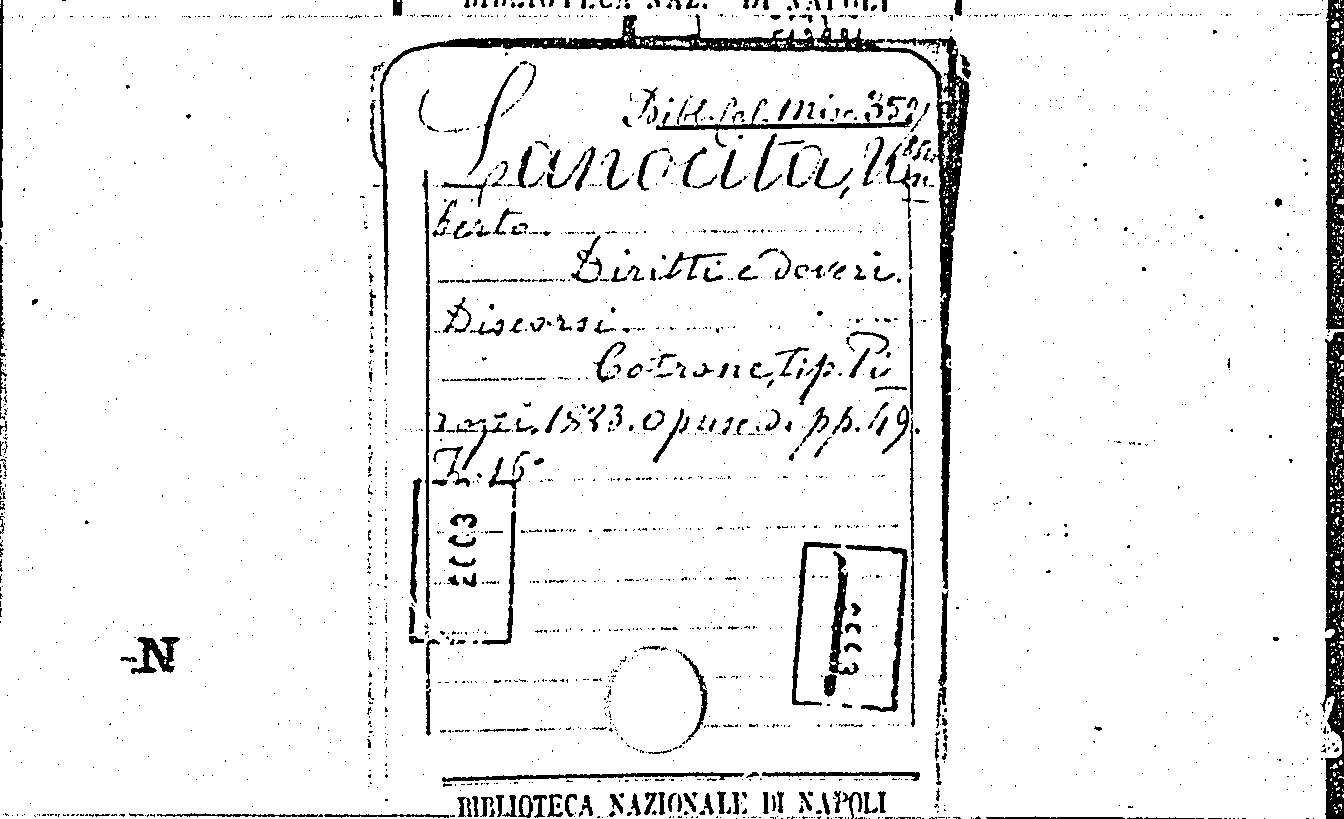 BIBLIOTECA NAZ. DI NAPOLI
Bibl. Sal. Misc.
Lanocita, Um
berto.
Diritti e doveri.
Discorsi.
Cotrone, tip. Pi
rozzi, 1883. opusc. di pp. 49.
In. 16°
2003
N
BIBLIOTECA NAZIONALE DI NAPOLI